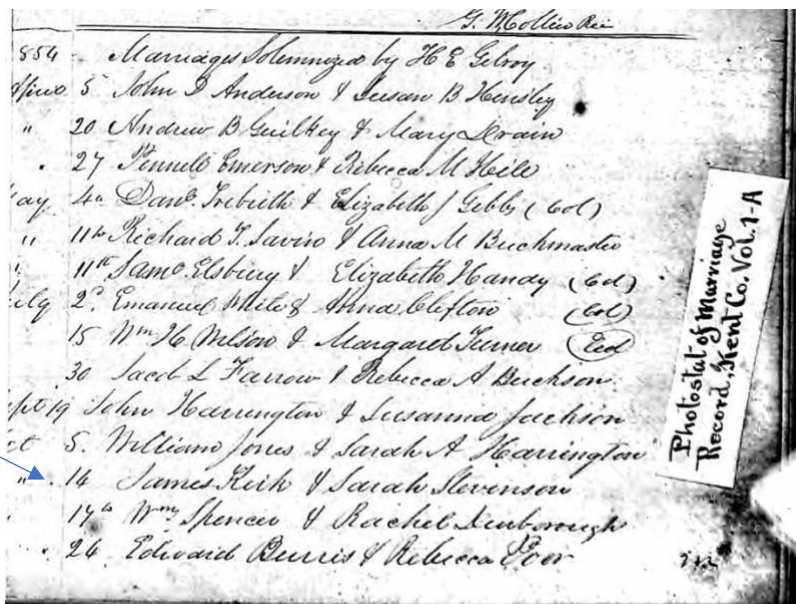 G. W Collier Rec
854 - Marriages Solemnized by H E Gilroy
5 John D Anderson & Susan B. Hensley
" 20 Andrew B Guilkey & Mary Drain
. 27 Pennell Emerson & Rebecca M Heile
ay 4th Danl. & Elizabeth J Gibbs (Col)
" 11th Richard T. Savin & Anna M Buckmaster
" 11th Saml. Elsbury & Elizabeth Handy (Col)
uly 2d. Emanuel & Anna Clifton (Col)
15 Wm H. Wilson & Margaret Turner (Col)
30 Jacob L Farrow & Rebecca A
pt 19 John Harrington & Susanna Jackson
ct 5. William Jones & Sarah A Harrington
" . 14 James Kirk & Sarah Stevenson
, 17th Wm Spencer & Rachel
" . 26. Edward Burris & Rebecca Poor
Photostat of Marriage
Record, Kent Co. Vol. 1-A